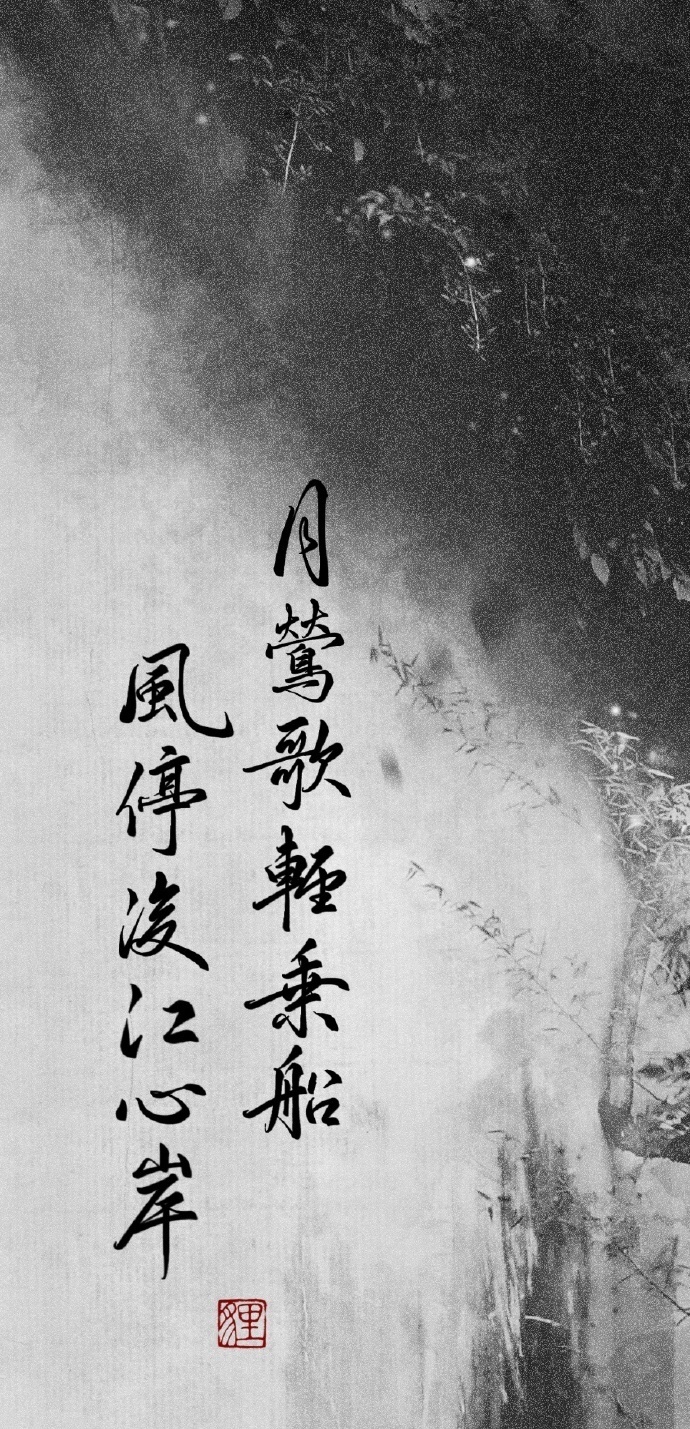 月鶯歌輕乗船
風停浚江心岸
貍